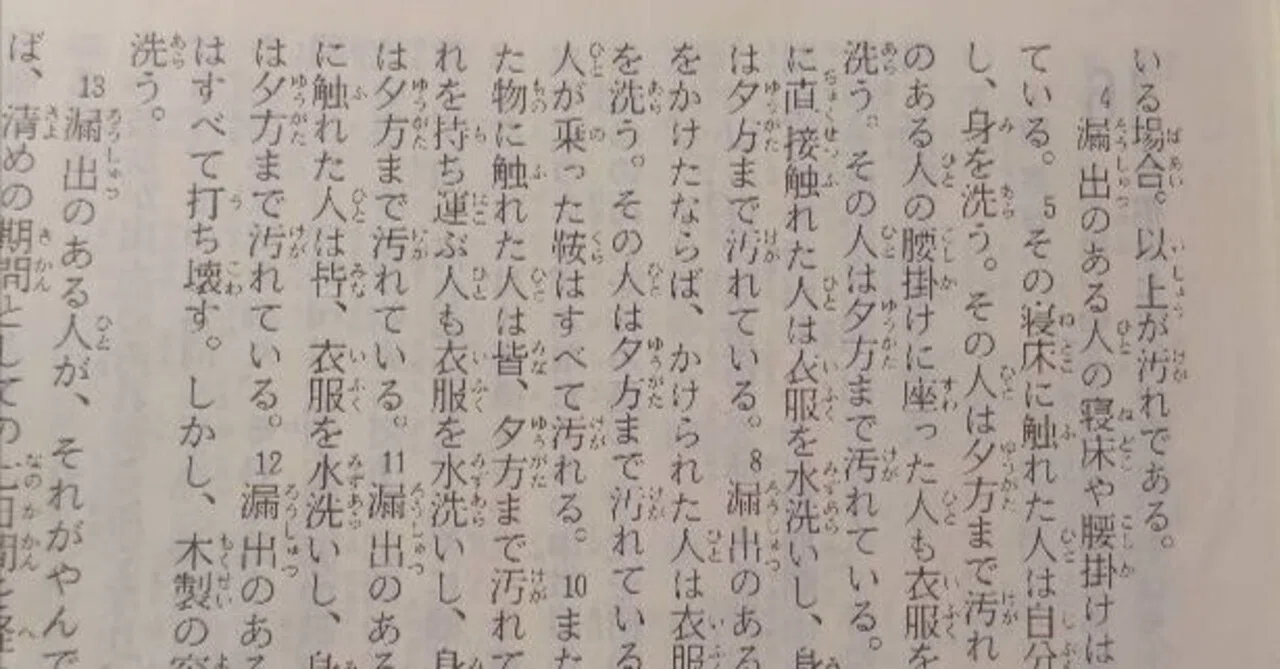 いる場合。以上が汚れである。
4 漏出のある人の寝床や腰掛けは
ている。5 その寝床に触れた人は自分
し、身を洗う。その人は夕方まで汚れ
のある人の腰掛けに座った人も衣服を
洗う。その人は夕方まで汚れている。
に直接触れた人は衣服を水洗いし、身
は夕方まで汚れている。8 漏出のある
をかけたならば、かけられた人は衣服
を洗う。その人は夕方まで汚れている
人が乗った鞍はすべて汚れる。10 また
た物に触れた人は皆、夕方まで汚れて
れを持ち運ぶ人も衣服を水洗いし、身
は夕方まで汚れている。11 漏出のある
に触れた人は皆、衣服を水洗いし、身
は夕方まで汚れている。12 漏出のある
はすべて打ち壊す。しかし、木製の
洗う。
13 漏出のある人が、それがやんで
ば、清めの期間としての七日間を経